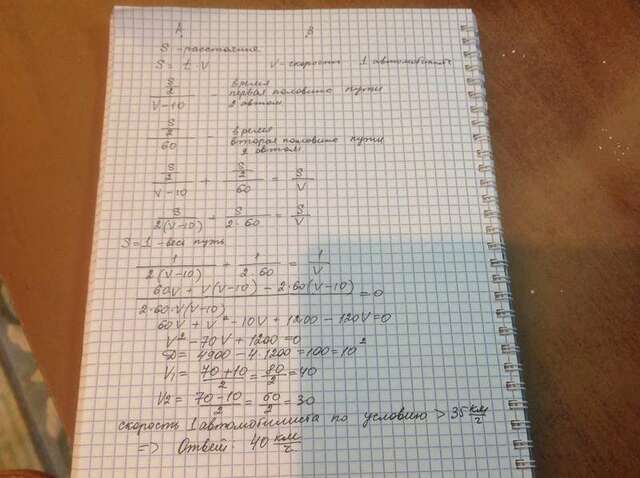 A B
S - расстояние
S = t · V V - скорость 1 автомобилист
S/2 / V-10 - время первая половина пути 2 автом
S/2 / 60 - время вторая половина пути 2 автом
S/2 / V-10 + S/2 / 60 = S/V
S / 2(V-10) + S / 2·60 = S/V
S=1 - весь путь
1 / 2(V-10) + 1 / 2·60 = 1/V
60V + V(V-10) - 2·60(V-10) / 2·60·V(V-10) = 0
60V + V² - 10V + 1200 - 120V = 0
V² - 70V + 1200 = 0
D = 4900 - 4·1200 = 100 = 10²
V1 = 70+10 / 2 = 80/2 = 40
V2 = 70-10 / 2 = 60/2 = 30
скорость 1 автомобилиста по условию > 35 км/ч
=> Ответ: 40 км/ч